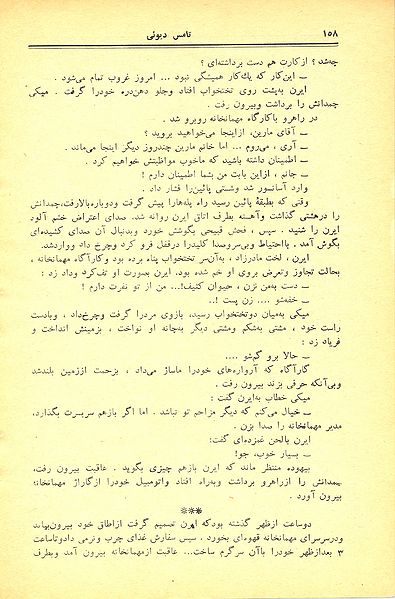 ۱۵۸ تامس دیوئی
چه‌شد؟ ازکارت هم دست برداشته‌ای؟
ــ این‌کار که یك‌کار همیشگی نبود ... امروز غروب تمام می‌شود .
ایرن به‌پشت روی تختخواب افتاد وجلو دهن‌دره خودرا گرفت . میکی
چمدانش را برداشت وبیرون رفت .
در راهرو باکارگاه مهمانخانه روبرو شد .
ــ آقای مارین، ازاینجا می‌خواهید بروید ؟
ــ آری ، می‌روم ... اما خانم مارین چندروز دیگر اینجا می‌ماند .
ــ اطمینان داشته باشید که ماخوب مواظبتش خواهیم کرد .
ــ جانم ، ازاین بابت من بشما اطمینان دارم !
وارد آسانسور شد وشستی پائین‌را فشار داد .
وقتی که بطبقهٔ پائین رسید راه پله‌هارا پیش گرفت ودوباره‌بالارفت،چمدانش
را درهشتی گذاشت وآهسته بطرف اتاق ایرن روانه شد. صدای اعتراض خشم آلود
ایرن را شنید . سپس ، فحش قبیحی بگوشش خورد وبدنبال آن صدای کشیده‌ای
بگوش آمد . بااحتیاط وبی‌سروصدا کلیدرا درقفل فرو کرد وچرخ داد وواردشد.
ایرن ، لخت مادرزاد ، به‌آن‌سر تختخواب پناه برده بود وکارآگاه مهمانخانه ،
بحالت تجاوز وتعرض بروی او خم شده بود. ایرن بصورت او تف‌کرد وداد زد :
ــ دست به‌من نزن ، حیوان کثیف!... من از تو نفرت دارم !
ــ خفه‌شو .... زن پست !..
میکی به‌میان دوتختخواب رسید، بازوی مردرا گرفت وچرخ‌داد ، وبادست
راست خود ، مشتی به‌شکم ومشتی دیگر به‌چانه او نواخت ، بزمینش انداخت و
فریاد زد :
ــ حالا برو گم‌شو ....
کارآگاه که آرواره‌های خودرا ماساژ می‌داد ، بزحمت اززمین بلندشد
وبی‌آنکه حرفی بزند بیرون رفت .
میکی خطاب به‌ایرن گفت:
ــ خیال می‌کنم که دیگر مزاحم تو نباشد . اما اگر بازهم سربسرت بگذارد،
مدیر مهمانخانه را صدا بزن .
ایرن بالحن غمزده‌ای گفت:
ــ بسیار خوب، جو!
بیهوده منتظر ماند که ایرن بازهم چیزی بگوید . عاقبت بیرون رفت،
چمدانش را ازراهرو برداشت وبه‌راه افتاد واتومبیل خودرا ازگاراژ مهمانخانه
بیرون آورد .
***
دوساعت ازظهر گذشته بودکه ایرن تصمیم گرفت ازاطاق خود بیرون‌بیاید
ودرسرسرای مهمانخانه قهوه‌ای بخورد ، سپس سفارش غذای چرب ونرمی دادوتاساعت
۳ بعدازظهر خودرا باآن سرگرم ساخت... عاقبت ازمهمانخانه بیرون آمد وبطرف